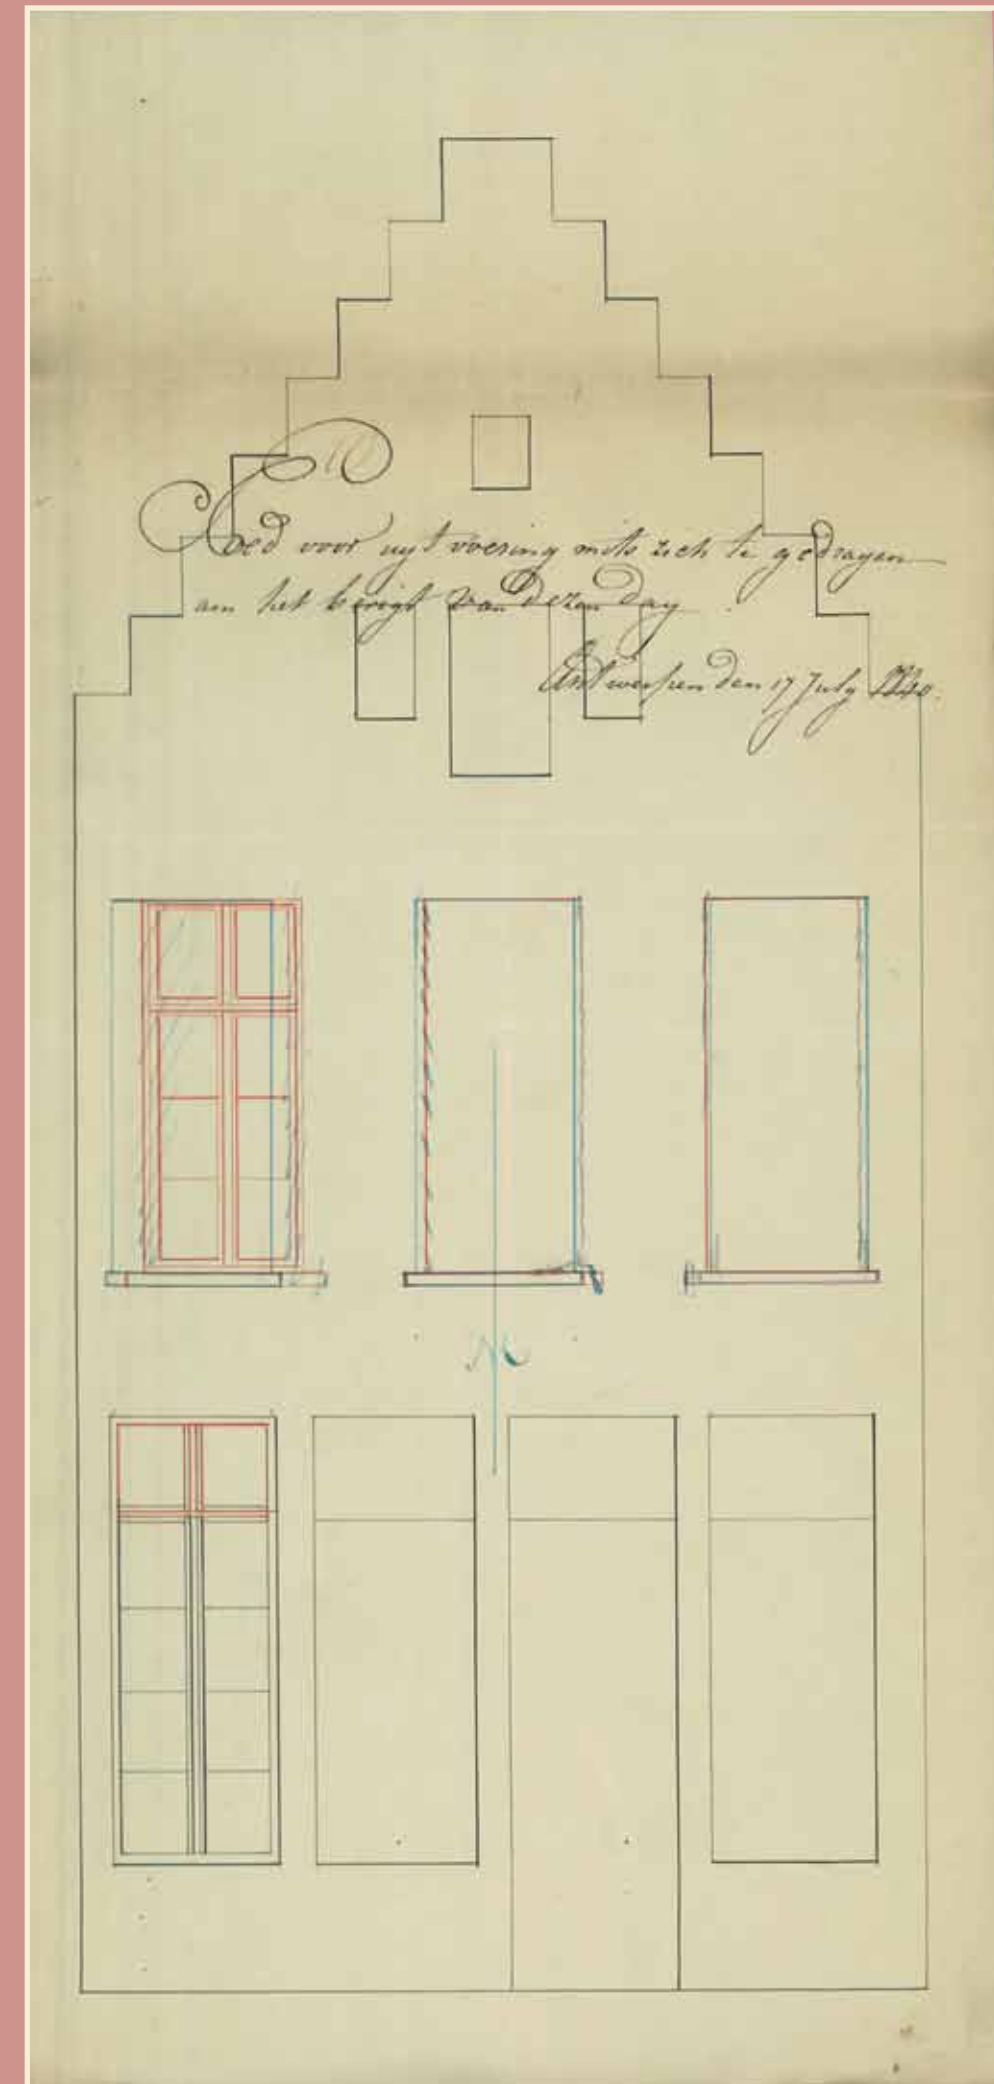 Goed voor uytvoering mits zich te gedragen
aan het berigt van dezen dag
Antwerpen den 17 July 1840.